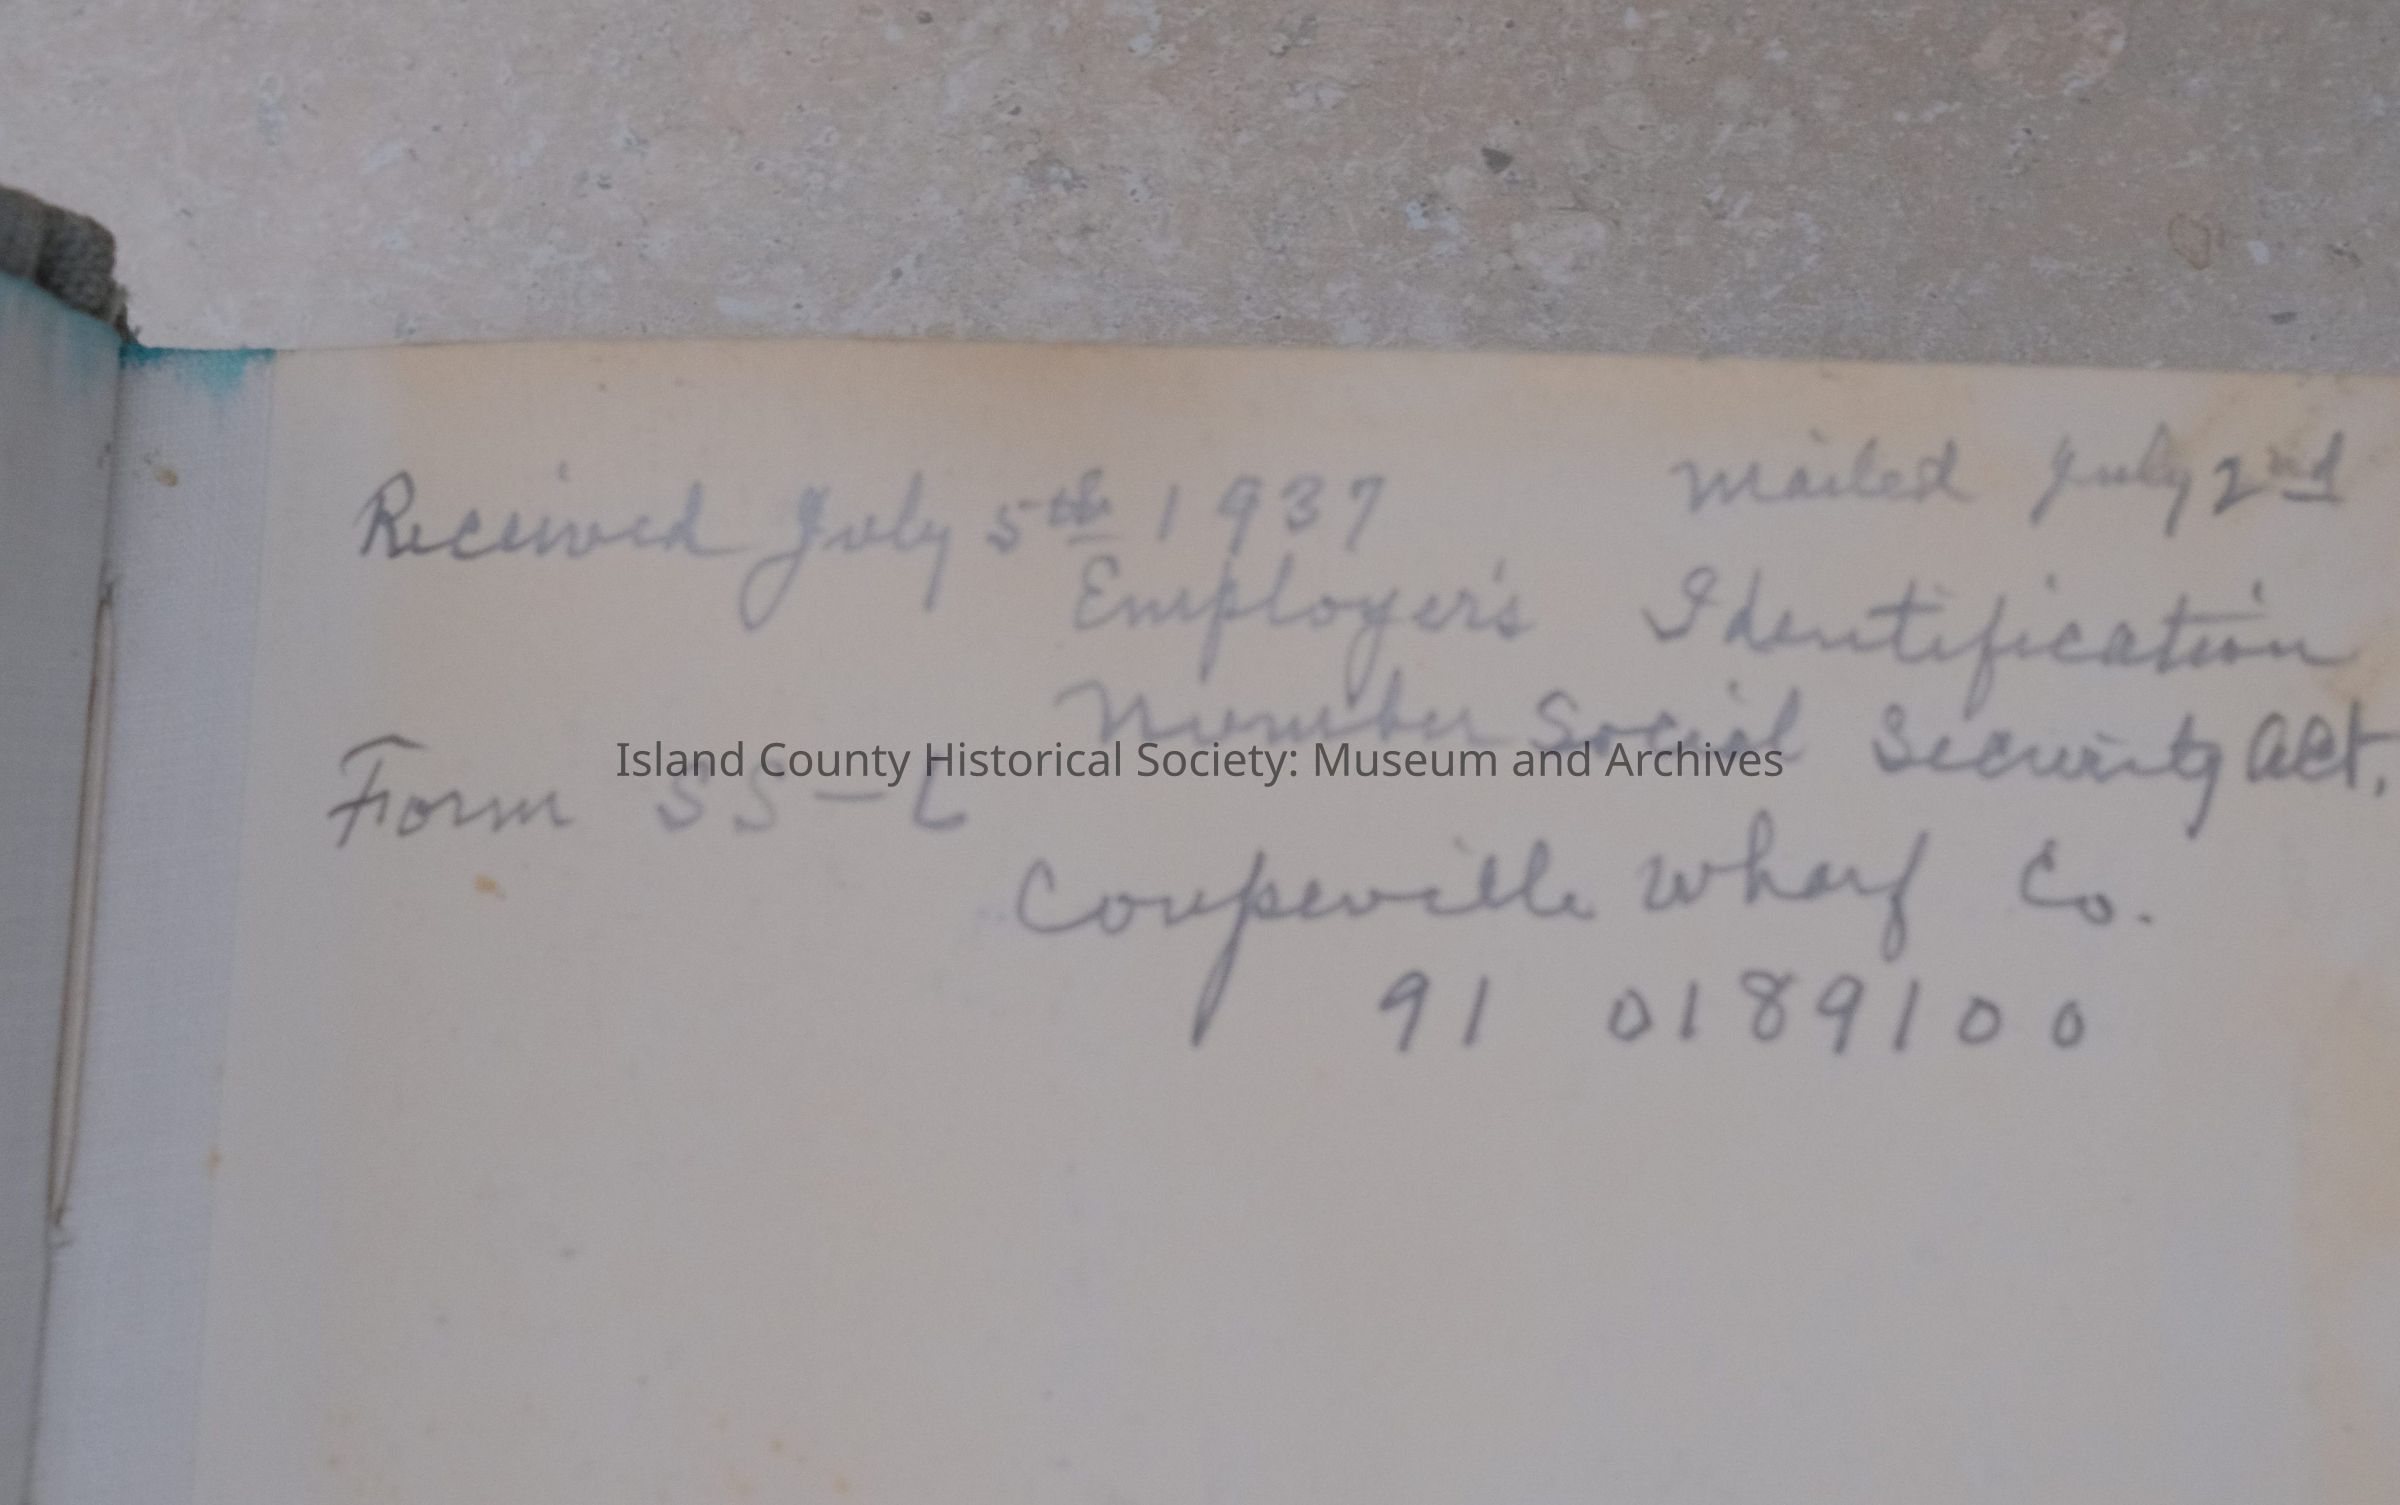 Received July 5th 1937 Mailed July 2nd
Employer's Identification
Number Social Security Act.
Island County Historical Society: Museum and Archives
Form SS-L
Coupeville Wharf Co.
91 0189100